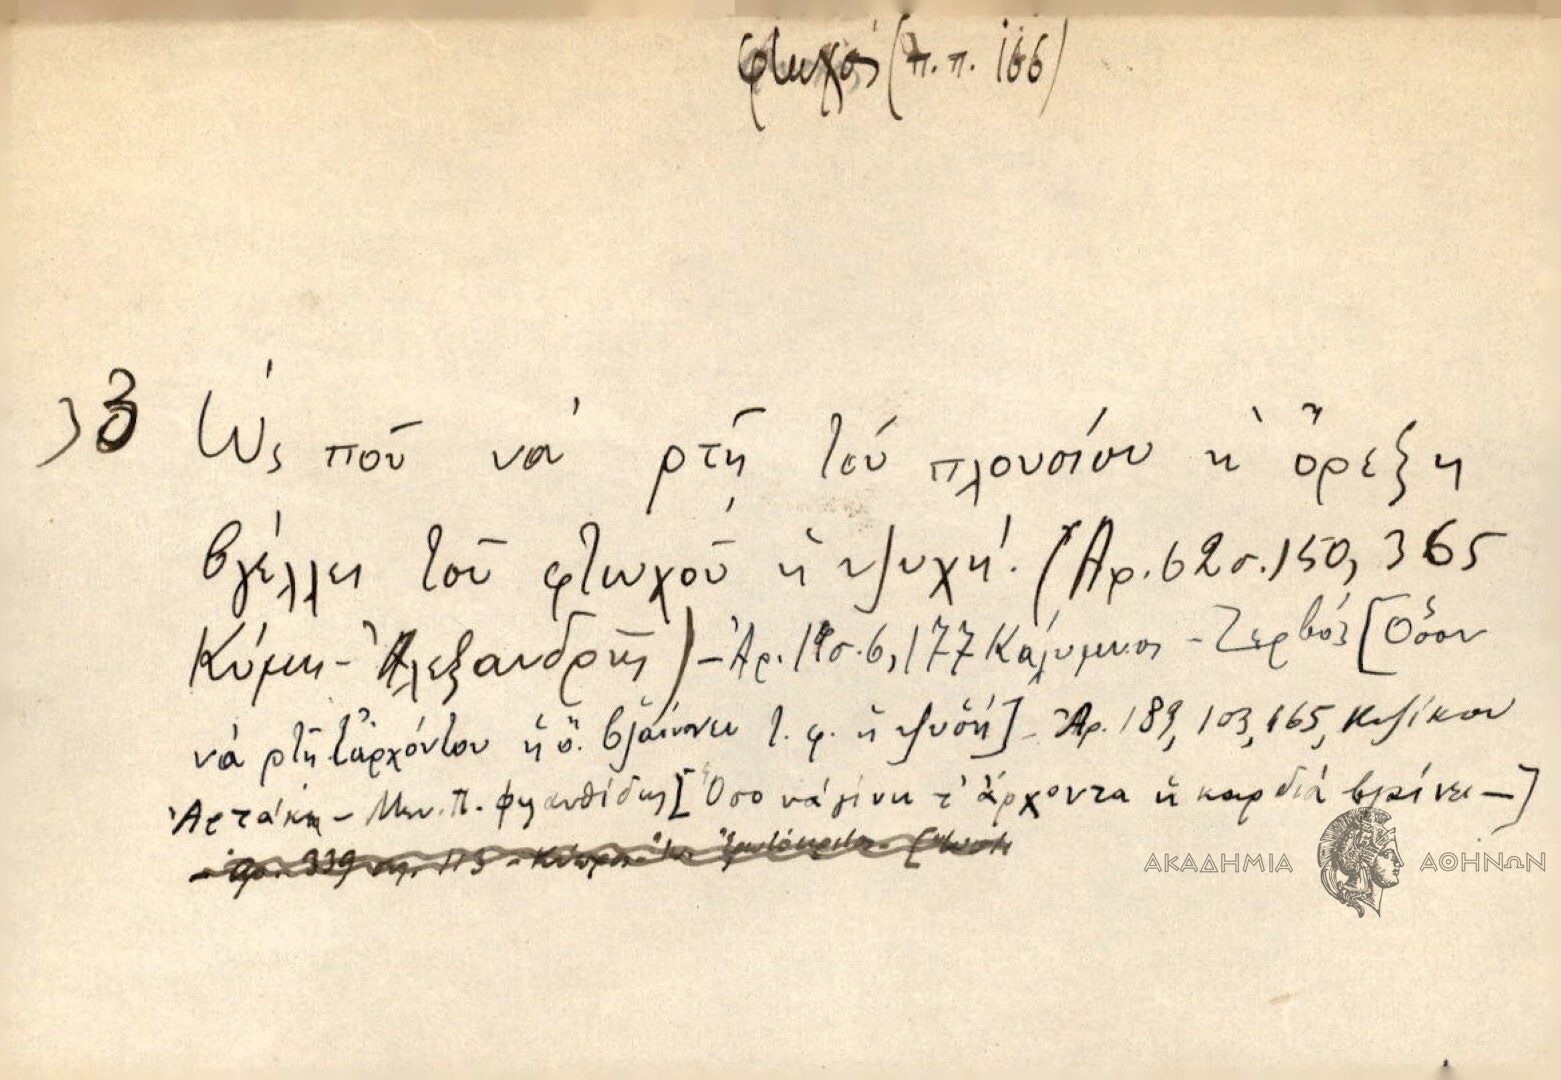 φτωχός (π.π. 166)
33 Ὡς ποῦ νά ρτῇ τοῦ πλουσίου ἡ ὄρεξη
βγέλλει τοῦ φτωχοῦ ἡ ψυχή. (Ἀρ. 62 σ. 150, 365
Κύμη - Ἀλεξανδρῆς) - Ἀρ. σ. 6, 177 Κάλυμνος - Ζερβός [Ὅσον
νά ρτῇ τἀρχόντου ἡ ὄ. βγαίννει τ. φ. ἡ ψυδή] - Ἀρ. 189, 103, 165, Κυζίκου
Ἀρτάκη - Μεν. Π. Φιλανθίδης [Ὅσο νά γίνῃ τ' ἄρχοντα ἡ καρδιά βγαίνει -]
ΑΚΑΔΗΜΙΑ ΑΘΗΝΩΝ